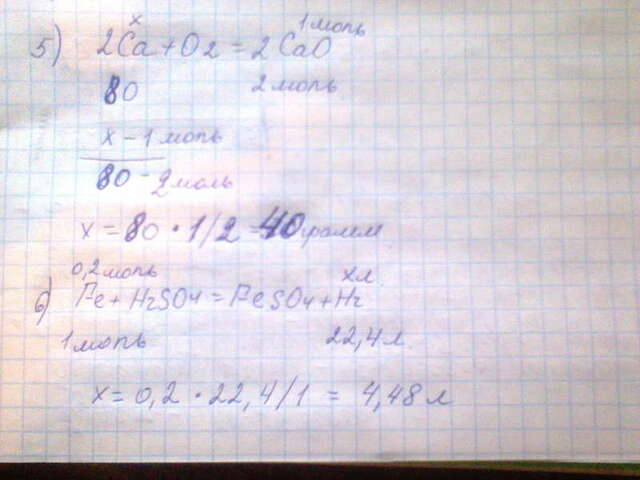 x 1 моль
5) 2Ca + O2 = 2CaO
80 2 моль
x - 1 моль
80 - 2 моль
x = 80 • 1/2 = 40 грамм
0,2 моль x л.
6) Fe + H2SO4 = FeSO4 + H2
1 моль 22,4 л.
x = 0,2 • 22,4/1 = 4,48 л